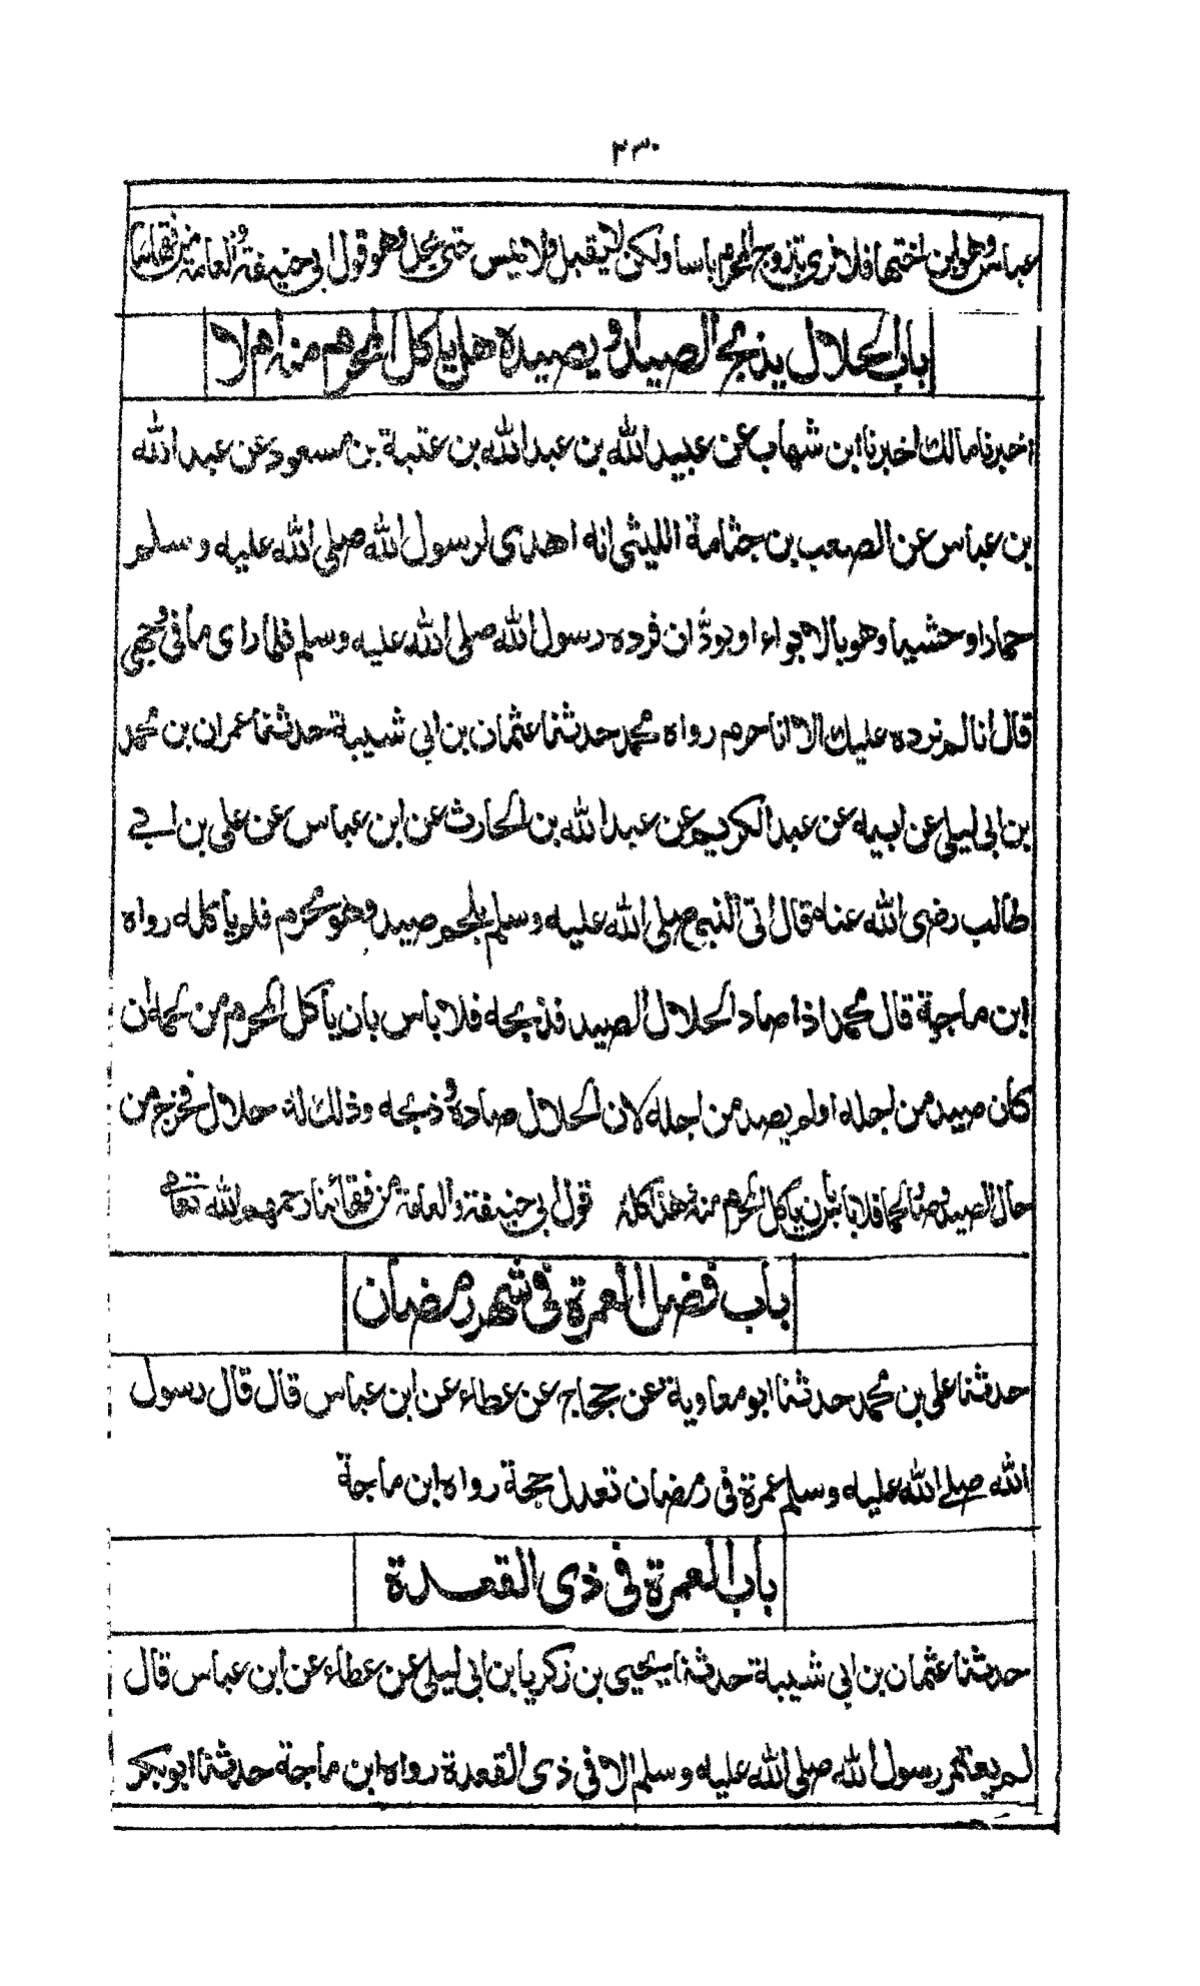 ٢٣٠
عباس وهو ابن اختها فلا نرى بتزوج المحرم باسا ولكن لا يقبل ولا يمس حتى يحل وهو قول ابي حنيفة والعامة من فقهائنا
باب الحلال يذبح الصيد او يصيده هل ياكل المحرم منه ام لا
اخبرنا مالك اخبرنا ابن شهاب عن عبيد الله بن عبد الله بن عتبة بن مسعود عن عبد الله
بن عباس عن الصعب بن جثامة الليثى انه اهدى لرسول الله صلى الله عليه وسلم
حمارا وحشيا وهو بالابواء او بودّان فرده رسول الله صلى الله عليه وسلم فلما راى ما فى وجهى
قال انا لم نرده عليك الا انا حرم رواه محمد حدثنا عثمان بن ابي شيبة حدثنا عمران بن محمد
بن ابي ليلى عن ابيه عن عبد الكريم عن عبد الله بن الحارث عن ابن عباس عن على بن ابے
طالب رضى الله عنه قال اتى النبى صلى الله عليه وسلم بلحم صيد وهو محرم فلم ياكله رواه
ابن ماجة قال محمد اذا صاد الحلال الصيد فذبحه فلا باس بان ياكل المحرم من لحمه ان
كان صيد من اجله او لم يصد من اجله لان الحلال صاده وذبحه وذلك له حلال فخرج من
حال الصيد وصار لحما فلا باس بان ياكل المحرم منه وهذا كله قول ابي حنيفة والعامة من فقهائنا رحمهم الله تعالى
باب فضل العمرة فى شهر رمضان
حدثنا على بن محمد حدثنا ابو معاوية عن حجاج عن عطاء عن ابن عباس قال قال رسول
الله صلے الله عليه وسلم عمرة فى رمضان تعدل حجة رواه ابن ماجة
باب العمرة فى ذى القعدة
حدثنا عثمان بن ابي شيبة حدثنا يحيى بن زكريا بن ابي ليلى عن عطاء عن ابن عباس قال
لم يعتمر رسول الله صلى الله عليه وسلم الا فى ذى القعدة رواه ابن ماجة حدثنا ابو بكر